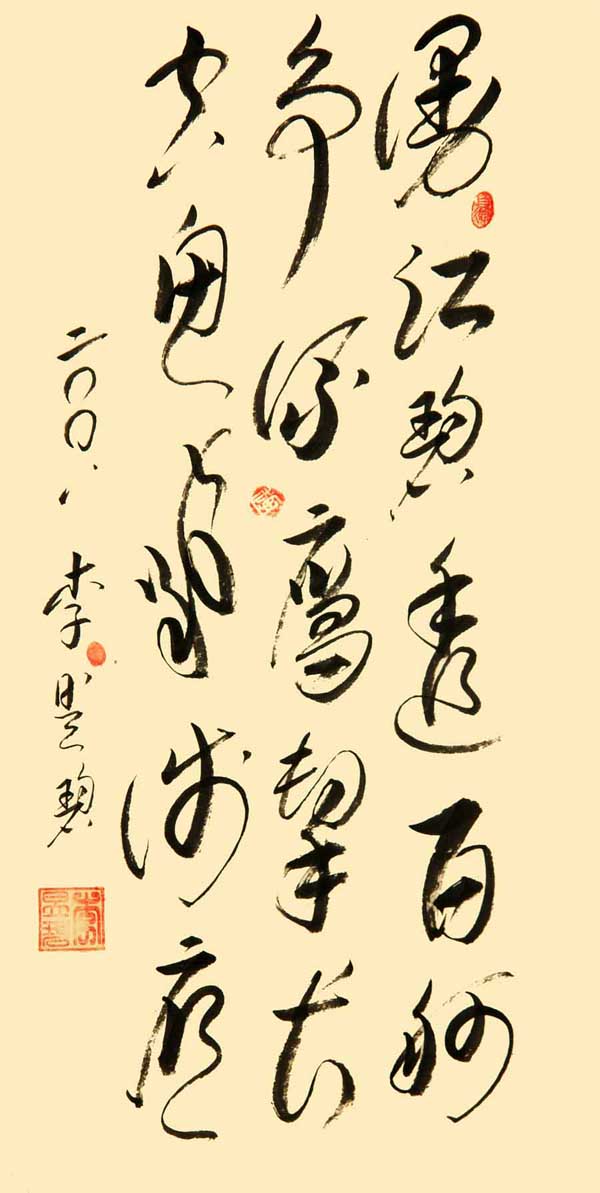 漫江碧透百舸
争流鹰擊长
空鱼翔浅底
二〇〇八 李 碧